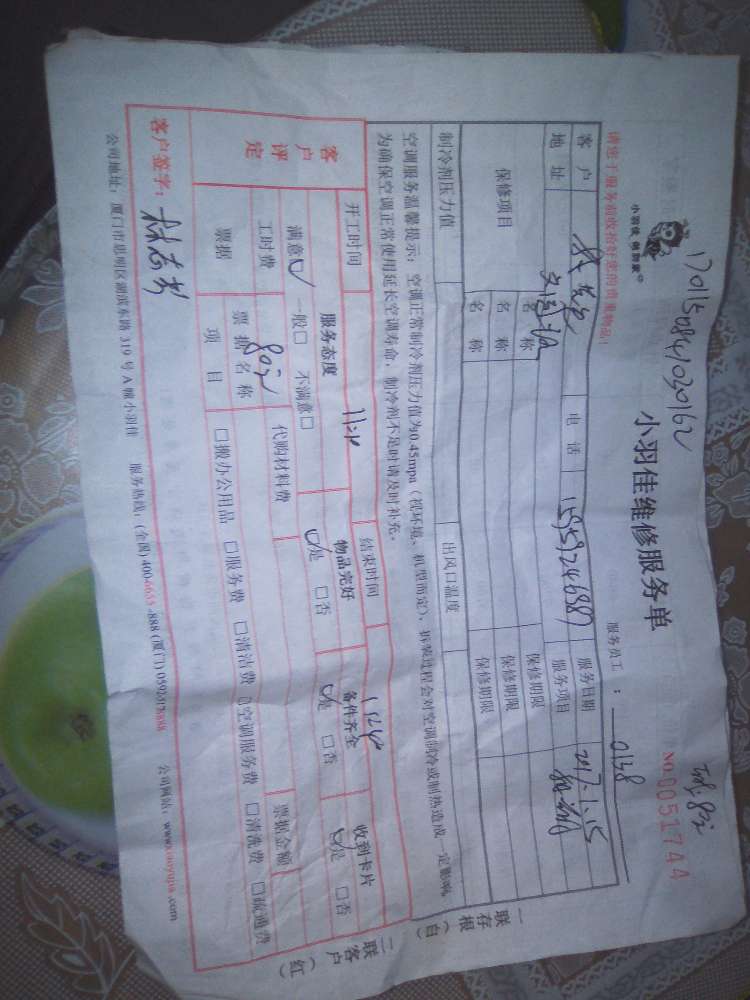 1701150841030162
小羽佳 做到家
小羽佳维修服务单
NO.0051744
服务员工：0138
请您于服务前收拾好您的贵重物品！
客户 电话 服务日期 2017.1.15
地址 服务项目
保修项目 名称 保修期限
名称 保修期限
名称 保修期限
制冷剂压力值 出风口温度
空调服务温馨提示：空调正常制冷剂压力值为0.45mpa（视环境、机型而定），拆装过程会对空调制冷或制热造成一定影响，
为确保空调正常使用延长空调寿命，制冷剂不足时请及时补充。
一联存根（白）
二联客户（红）
开工时间 结束时间
客户评定
服务态度 物品完好 备件齐全 收到卡片
满意☑ 一般□ 不满意□ ☑是 □否 ☑是 □否 ☑是 □否
工时费 80元 代购材料费
票据 票据名称 票据金额
项目 □搬办公用品 □服务费 □清洁费 □空调服务费 □清洗费 □疏通费
客户签字：
公司地址：厦门市思明区湖滨东路319号A幢小羽佳 服务热线：(全国) 400-6655-888 (厦门)